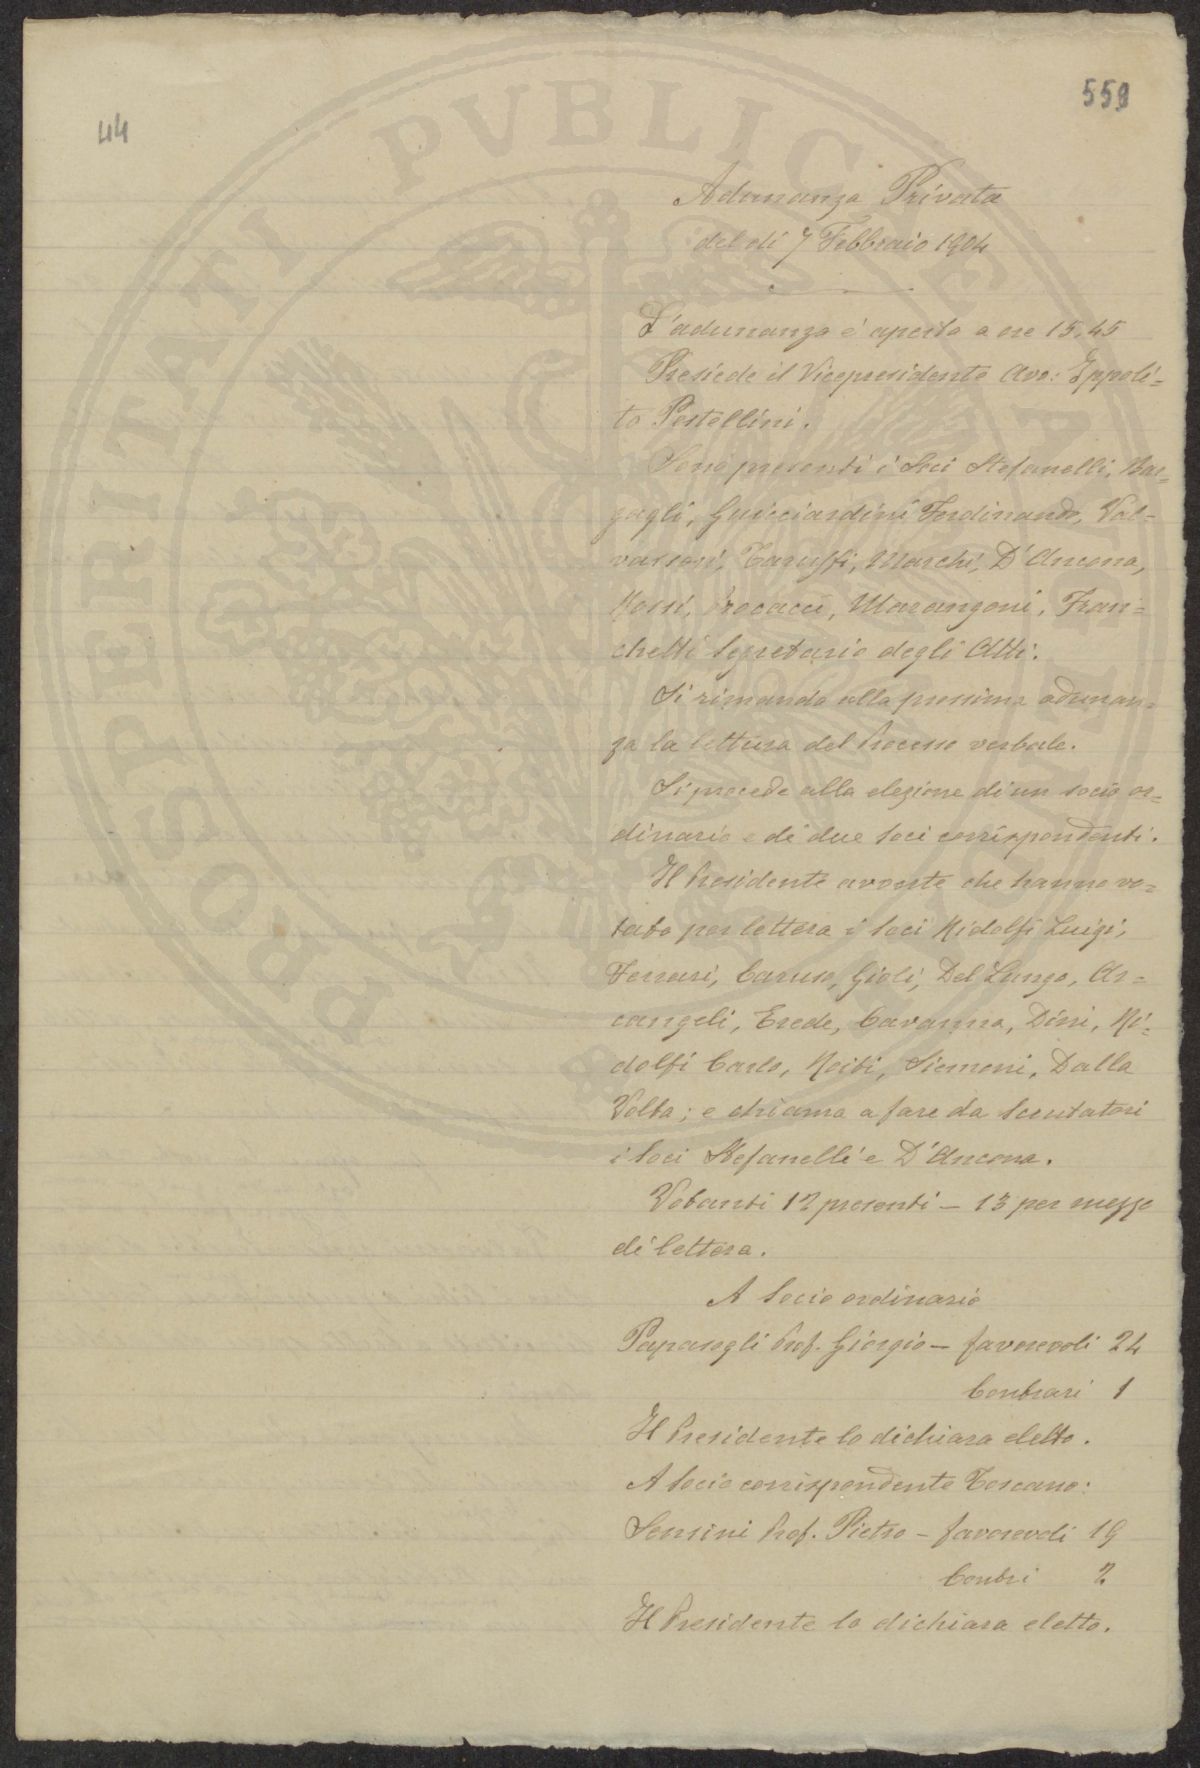 44
559
Adunanza Privata
del dì 7 Febbraio 1904
L'adunanza è aperta a ore 15,45
Presiede il Vicepresidente Avv: Eppoli=
to Pestellini.
Sono presenti i Soci Stefanelli, Bar=
gagli, Guicciardini Ferdinando, Val=
vassori, Taruffi, Marchi, D'Ancona,
Rossi, Procacci, Marangoni, Fran=
chetti Segretario degli Atti.
Si rimanda alla prossima adunan=
za la lettura del Processo verbale.
Si procede alla elezione di un socio or=
dinario e di due Soci corrispondenti.
Il Presidente avverte che hanno vo=
tato per lettera i Soci Ridolfi Luigi,
Ferrari, Caruso, Gioli, Del Lungo, Ar=
cangeli, Erede, Cavanna, Dini, Ri=
dolfi Carlo, Roiti, Siemoni, Dalla
Volta; e chiama a fare da Scrutatori
i Soci Stefanelli e D'Ancona.
Votanti 12 presenti - 13 per mezzo
di lettera.
A Socio ordinario
Papasogli Prof. Giorgio - favorevoli 24
Contrari 1
Il Presidente lo dichiara eletto.
A Socio corrispondente Toscano:
Sensini Prof. Pietro - favorevoli 19
Contri 2
Il Presidente lo dichiara eletto.
PROSPERITATI PVBLICAE AVGENDAE